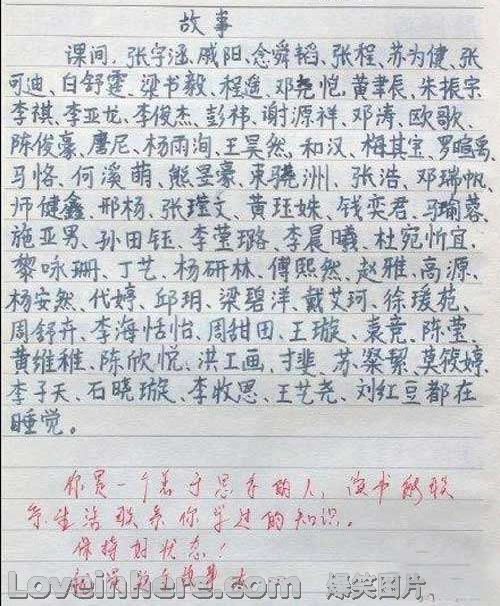 故事
课间,张宇涵、戚阳、念舜韬、张程、苏为健、张
可迪、白舒霆、梁书毅、程遥、邓尧恺、黄聿辰、朱振宇
李祺、李亚龙、李俊杰、彭祎、谢源祥、邓涛、欧歌、
陈俊豪、詹尼、杨雨洵、王昊然、和汉、梅其宝、罗
马恪、何溪萌、熊昱豪、束骁洲、张浩、邓瑞帆、
师健鑫、邢杨、张瑾文、黄珏姝、钱奕君、马瑜蓉、
施亚男、孙田钰、李莹璐、李晨曦、杜宛忻宜、
黎咏珊、丁艺、杨研林、傅熙然、赵雅、高源、
杨安然、代婷、邱玥、梁碧洋、戴艾珂、徐瑗苑、
周舒卉、李海恬怡、周甜田、王璇、袁竞、陈莹、
黄维稚、陈欣悦、洪工画、寸斐、苏粲絜、莫筱婷、
李子天、石晓璇、李牧思、王艺尧、刘红豆都在
睡觉。
你是一个善于思考的人,读书能联
系生活联系你学过的知识。
保持好状态!
故事
Loveinhere.com 爆笑图片